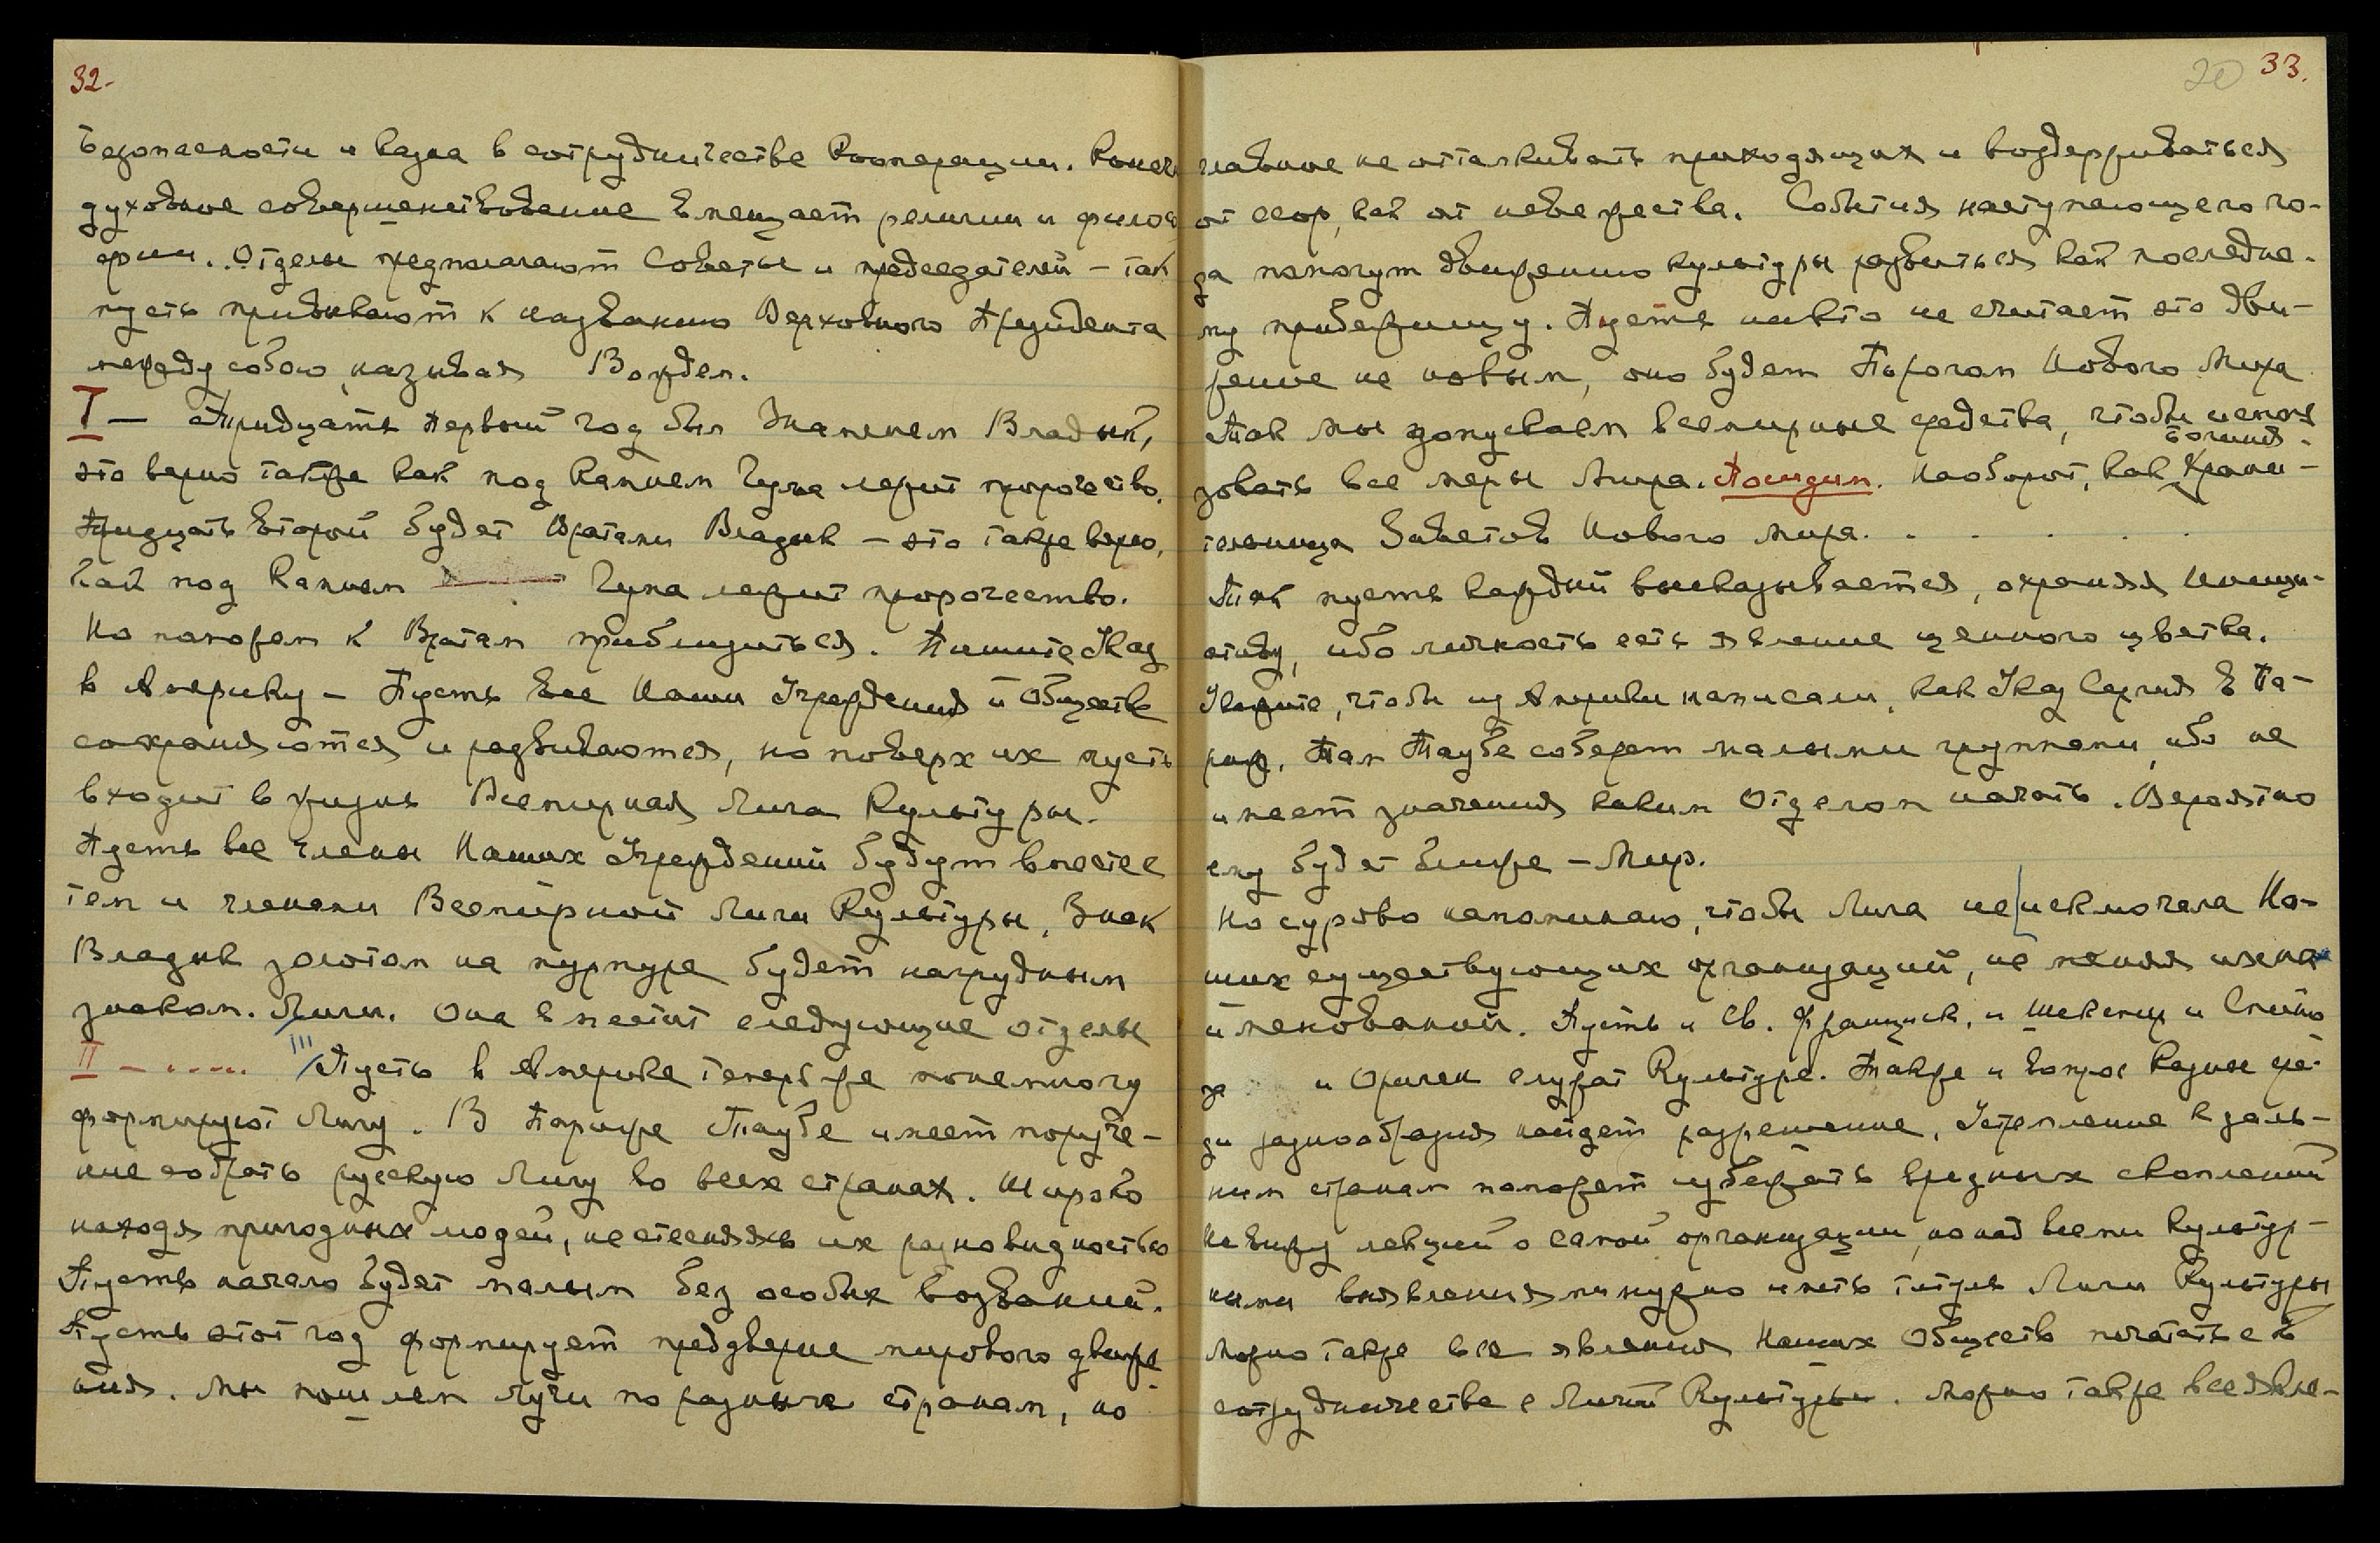 32.
Безопасности и казна в сотрудничестве Кооперации. Конеч
духовное совершенствование вмещает религии и фило
фии. Отделы предполагают Советы и председателей – так
пусть привыкают к названию Верховного Президента
между собою, называя Вождем.
I – Тридцать первый год был Знаменем Владык,
это верно также как под камнем Чума лежит пророчество.
Тридцать второй будет Вратами Владык – это также верно,
как под камнем Чума лежит пророчество.
Но поможем к Вратам приблизиться. Пишите Указ
в Америку – Пусть все Наши Учреждения и Общества
сохраняются и развиваются, но поверх их пусть
входит в жизнь Всемирная Лига Культуры.
Пусть все члены Наших Учреждений будут вместе с
тем и членами Всемирной Лиги Культуры. Знак
Владык золотом на пурпуре будет нагрудным
знаком. Лиги. Она вместит следующие отделы
II – ..... III Пусть в Америке теперь же понемногу
формируют Лигу. В Париже Таубе имеет поруче-
ние собрать русскую Лигу во всех странах. Широко
находя пригодных людей, не стесняясь их разновидностью
Пусть начало будет малым без особых воззваний.
Пусть этот год формирует преддверие мирового движе
ния. Мы пошлем Лучи по разным странам, но
20 33.
главное не отталкивать приходящих и воздержаться
от ссор, как от невежества. События наступающего го-
да помогут движению культуры развиться как последне-
му прибежищу. Пусть никто не считает это дви-
жение не новым, оно будет Порогом Нового Мира
Так мы допускаем всемирные средства, чтобы исполь
зовать все меры Мира. Посидим. Наоборот, как Храни-
тельница Заветов Нового Мира. . . . . . .
Так пусть каждый высказывается, охраняя Иници-
ативу, ибо личность есть явление ценного цветка.
Укажите, чтобы из Америки написали, как Указ Сергия в Па-
риж. Там Таубе соберет малыми группами, ибо не
имеет значения каким Отделом начать. Вероятно
ему будет ближе – Мир.
Но сурово напоминаю, чтобы Лига не исключала На-
ших существующих организаций, не меняя их на
именований. Пусть и Св. Франциск, и Шекспир и Спино
за и Ориген служат Культуре. Также и вопрос казны сре-
ди разнообразия найдет разрешение. Устремление к даль-
ним странам поможет избежать вредных скоплений
Не вижу лекций о самой организации, но над всеми культур-
ными выявлениями нужно иметь титул Лиги Культуры
Можно также все явления Наших Обществ печатать с в
сотрудничестве с Лигой Культуры. Можно также все явле-